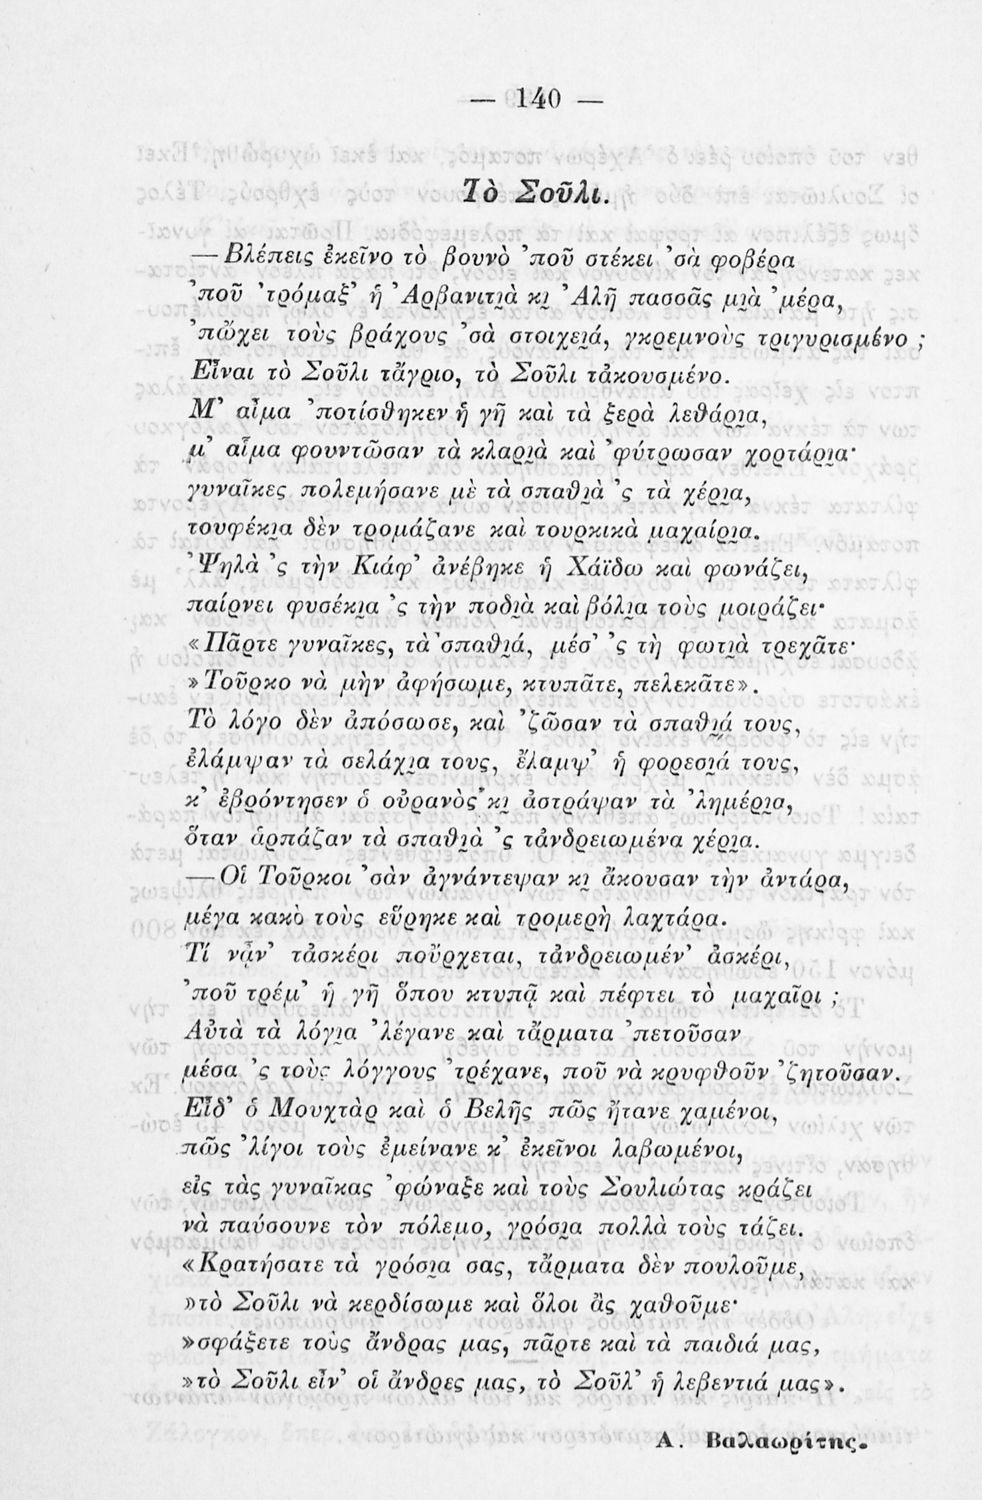 — 140 —
Τὸ Σοῦλι.
— Βλέπεις ἐκεῖνο τὸ βουνὸ ’ποῦ στέκει ’σὰ φοβέρα
’ποῦ ’τρόμαξ’ ἡ ’Αρβανιτι̯ὰ κι̯ ’Αλῆ πασσᾶς μι̯ὰ ’μέρα,
’πὤχει τοὺς βράχους ’σὰ στοιχει̯ά, γκρεμνοὺς τριγυρισμένο ;
Εἶναι τὸ Σοῦλι τἄγριο, τὸ Σοῦλι τἀκουσμένο.
Μ’ αἷμα ’ποτίσθηκεν ἡ γῆ καὶ τὰ ξερὰ λεθάρι̯α,
μ’ αἷμα φουντῶσαν τὰ κλαρι̯ὰ καὶ ’φύτρωσαν χορτάρι̯α·
γυναῖκες πολεμήσανε μὲ τὰ σπαθι̯ὰ ’ς τὰ χέρι̯α,
τουφέκι̯α δὲν τρομάζανε καὶ τουρκικὰ μαχαίρι̯α.
’Ψηλὰ ’ς τὴν Κιάφ’ ἀνέβηκε ἡ Χάϊδω καὶ φωνάζει,
παίρνει φυσέκι̯α ’ς τὴν ποδι̯ὰ καὶ βόλι̯α τοὺς μοιράζει·
«Πᾶρτε γυναῖκες, τὰ ’σπαθι̯ά, μέσ’ ’ς τὴ φωτι̯ὰ τρεχᾶτε·
»Τοῦρκο νὰ μὴν ἀφήσωμε, κτυπᾶτε, πελεκᾶτε».
Τὸ λόγο δὲν ἀπόσωσε, καὶ ’ζῶσαν τὰ σπαθι̯ά τους,
ἐλάμψαν τὰ σελάχι̯α τους, ἔλαμψ’ ἡ φορεσι̯ά τους,
κ’ ἐβρόντησεν ὁ οὐρανὸς κι̯ ἀστράψαν τὰ ’λημέρι̯α,
ὅταν ἁρπάζαν τὰ σπαθι̯ὰ ’ς τἀνδρειωμένα χέρι̯α.
— Οἱ Τοῦρκοι ’σὰν ἀγνάντεψαν κι̯ ἄκουσαν τὴν ἀντάρα,
μέγα κακὸ τοὺς εὕρηκε καὶ τρομερὴ λαχτάρα.
Τί νᾆν’ τἀσκέρι ποὔρχεται, τἀνδρειωμέν’ ἀσκέρι,
’ποῦ τρέμ’ ἡ γῆ ὅπου κτυπᾷ καὶ πέφτει τὸ μαχαῖρι ;
Αὐτὰ τὰ λόγι̯α ’λέγανε καὶ τἄρματα ’πετοῦσαν
μέσα ’ς τοὺς λόγγους ’τρέχανε, ποῦ νὰ κρυφθοῦν ’ζητοῦσαν.
Εἶδ’ ὁ Μουχτὰρ καὶ ὁ Βελῆς πῶς ἤτανε χαμένοι,
πῶς ’λίγοι τοὺς ἐμείνανε κ’ ἐκεῖνοι λαβωμένοι,
εἰς τὰς γυναῖκας ’φώναξε καὶ τοὺς Σουλιώτας κράζει
νὰ παύσουνε τὸν πόλεμο, γρόσι̯α πολλὰ τοὺς τάζει.
«Κρατήσατε τὰ γρόσι̯α σας, τἄρματα δὲν πουλοῦμε,
»τὸ Σοῦλι νὰ κερδίσωμε καὶ ὅλοι ἂς χαθοῦμε·
»σφάξετε τοὺς ἄνδρας μας, πᾶρτε καὶ τὰ παιδιά μας,
»τὸ Σοῦλι εἶν’ οἱ ἄνδρες μας, τὸ Σοῦλ’ ἡ λεβεντιά μας».
Α. Βαλαωρίτης.